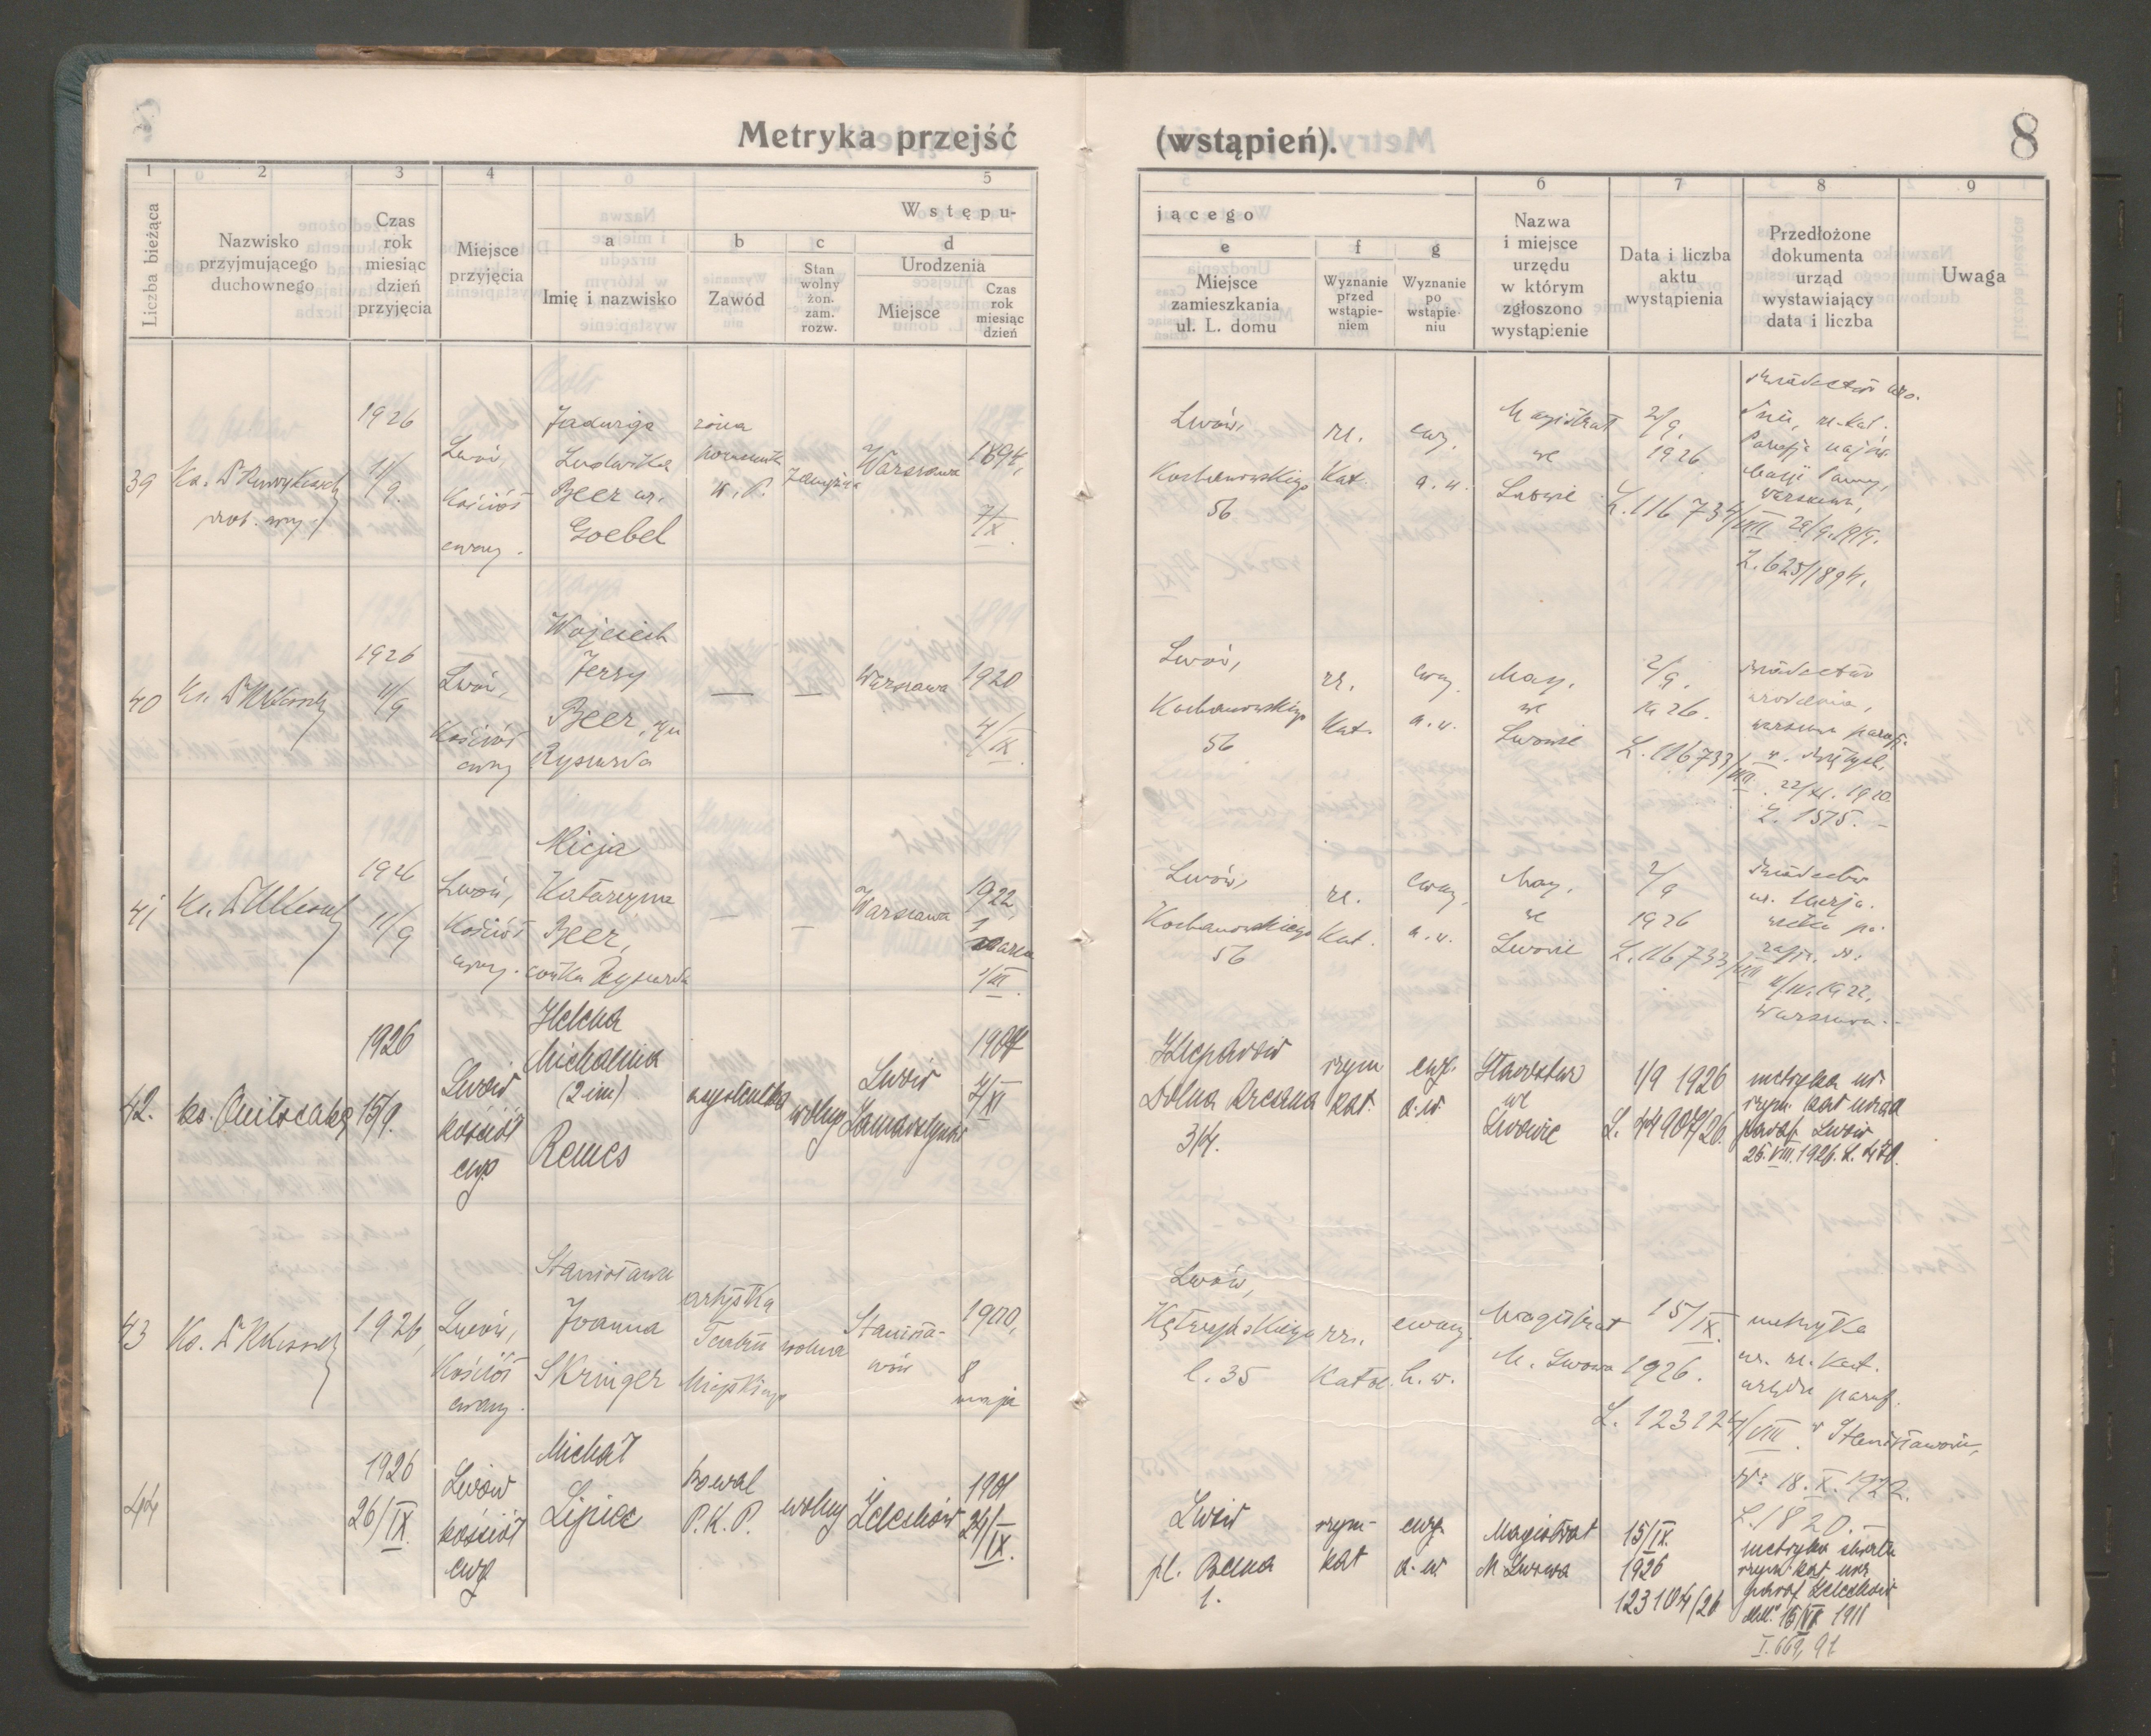 Metryka przejść (wstąpień). 8
1 2 3 4 5
Liczba bieżąca
Nazwisko
przyjmującego
duchownego
Czas
rok
miesiąc
dzień
przyjęcia
Miejsce
przyjęcia
Wstępu-
a b c d
Imię i nazwisko
Zawód
Stan
wolny
żon.
zam.
rozw.
Urodzenia
Miejsce
Czas
rok
miesiąc
dzień
6 7 8 9
jącego
e f g
Miejsce
zamieszkania
ul. L. domu
Wyznanie
przed
wstąpie-
niem
Wyznanie
po
wstąpie-
niu
Nazwa
i miejsce
urzędu
w którym
zgłoszono
wystąpienie
Data i liczba
aktu
wystąpienia
Przedłożone
dokumenta
urząd
wystawiający
data i liczba
Uwaga
39
Ks. Dr
1926
11/9.
Lwów,
Kościół
ewang.
Jadwiga
Ludwika
Beer ur.
Goebel
żona
W. P.
Warszawa
1894,
7/X.
Lwów,
Kochanowskiego
56
rz.
Kat.
ewg.
a. w.
Magistrat
we
Lwowie
2/9.
1926
L. 116734/VIII
rz.-kat.
Panny,
Warszawa,
L. 625/1894.
40
Ks. Dr
1926
11/9
Lwów,
Kościół
ewang
Wojciech
Jerzy
Beer, syn
Ryszarda
—
—
Warszawa
1920
4/IX.
Lwów,
Kochanowskiego
56
rz.
Kat.
ewang.
a. w.
Mag.
we
Lwowie
2/9.
1926.
L. 116733/VIII.
urodzenia,
1920.
L. 1575. –
41
Ks. Dr
1926
11/9
Lwów,
Kościół
ewang.
Alicja
Katarzyna
Beer,
córka Ryszarda
—
—
Warszawa
1922,
1
marca
1/III.
Lwów,
Kochanowskiego
56
rz.
Kat.
ewang.
a. w.
Mag.
we
Lwowie
2/9
1926
L. 116733/VIII
1922,
Warszawa. –
42.
ks.
1926
15/9.
Lwów
kościół
ewg
Helena
Michalina
(2 im)
Remes
asystentka
Lwów
Zamarstynów
4/XI
Kleparów
Dolna Boczna
3/4.
rzym
kat.
ewg.
a. w.
Starostwo
we
Lwowie
1/9 1926
metryka ur.
rzym. kat urząd
paraf. Lwów
26. VIII. 1926. L. 470.
43
Ks. Dr
1926,
Lwów,
Kościół
ewang.
Stanisława
Joanna
Skringer
artystka
Teatru
Miejskiego
wolna
Stanisła-
wów
1900,
8
maja
Lwów,
Kętrzyńskiego
l. 35
rz.
Katol.
ewang.
h. w.
Magistrat
M. Lwowa
15/IX.
1926.
L. 123124/VIII.
metryka
ur. rz. kat.
urzędu paraf.
w Stanisławowie,
18. X. 1922.
L. 1820. –
44
1926
26/IX.
Lwów
kościół
ewg
Michał
Lipiec
kowal
P. K. P.
wolny
Żelechów
1901
24/IX.
Lwów
1.
rzym-
kat
ewg.
a. w.
Magistrat
M Lwowa
15/IX.
1926
123104/26
metryka chrztu
rzym kat urz
paraf Żelechów
1911